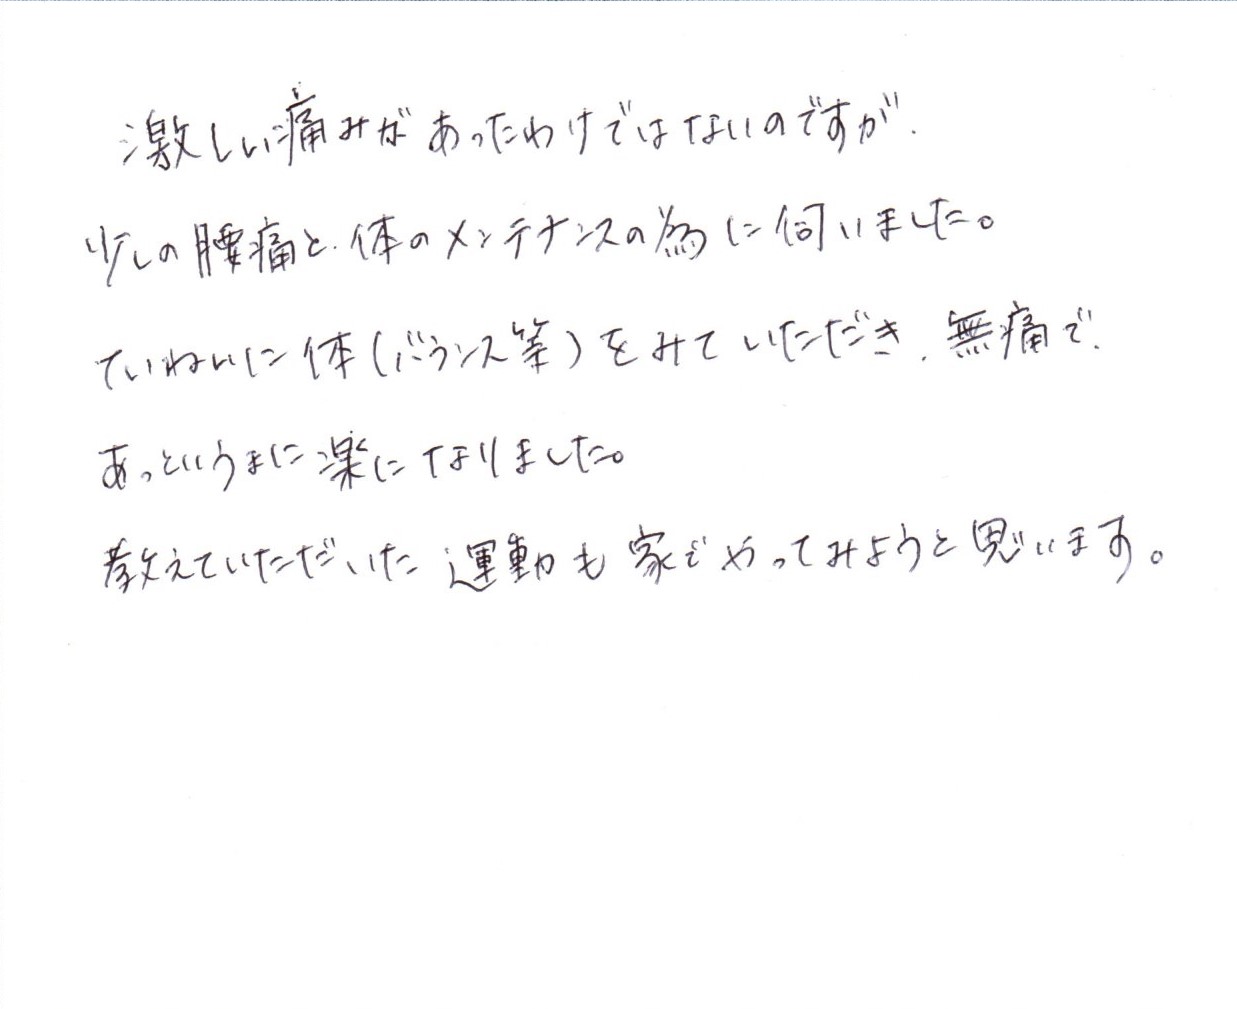 激しい痛みがあったわけではないのですが、
少しの腰痛と、体のメンテナンスの為に伺いました。
ていねいに体(バランス等)をみていただき、無痛で、
あっというまに楽になりました。
教えていただいた運動も家でやってみようと思います。